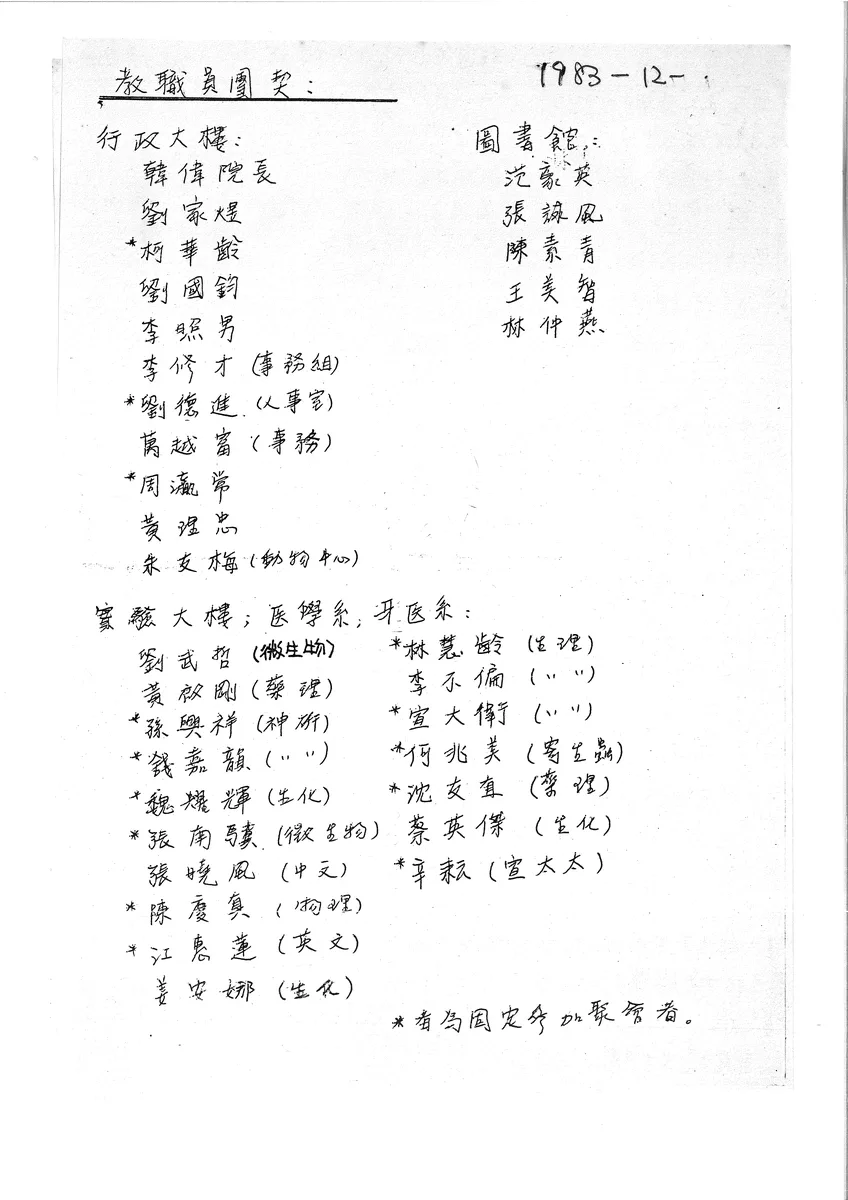 教職員團契：
1983-12-
行政大樓：
韓偉院長
劉家煜
*柯華齡
劉國鈞
李照男
李修才（事務組）
*劉德進（人事室）
萬越富（事務）
*周瀛常
黃理忠
朱友梅（動物中心）
圖書館：
范豪英
張詠風
陳素青
王美智
林仲燕
實驗大樓；医學系；牙医系：
劉武哲（微生物）
黃啟剛（藥理）
*孫興祥（神研）
*錢嘉韻（〃〃）
*魏耀輝（生化）
*張南驥（微生物）
張曉風（中文）
*陳慶真（物理）
*江惠蓮（英文）
姜安娜（生化）
*林慧齡（生理）
李不偏（〃〃）
*宣大衛（〃〃）
*何兆美（寄生蟲）
*沈友直（藥理）
蔡英傑（生化）
*辛耘（宣太太）
*者為固定參加聚會者。